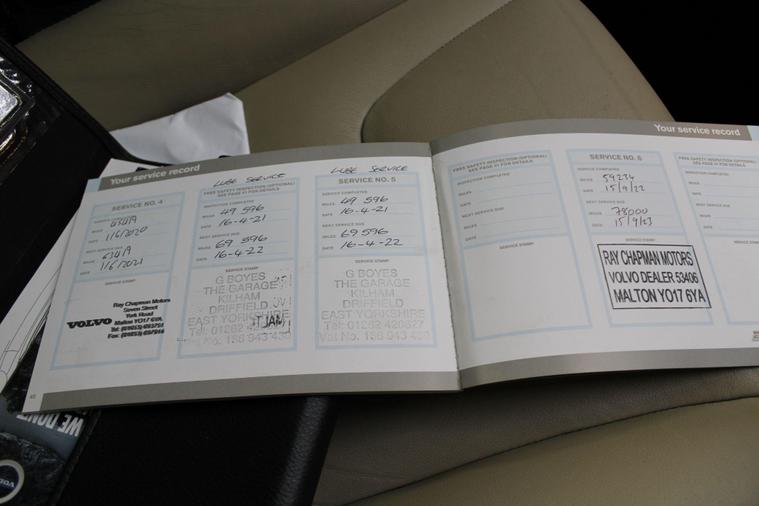 Your service record
SERVICE NO. 4
SERVICE COMPLETED
MILES
DATE 1/6/2020
NEXT SERVICE DUE
MILES
DATE 1/6/2021
SERVICE STAMP
Ray Chapman Motors
Seven Street
York Road
Malton YO17 6YA
VOLVO
LUBE SERVICE
FREE SAFETY INSPECTION (OPTIONAL)
SEE PAGE 11 FOR DETAILS
INSPECTION COMPLETED
MILES 49 596
DATE 16-4-21
NEXT SERVICE DUE
MILES 69 596
DATE 16-4-22
SERVICE STAMP
G BOYES
THE GARAGE
KILHAM
DRIFFIELD
EAST YORKSHIRE
LUBE SERVICE
SERVICE NO. 5
SERVICE COMPLETED
MILES 49 596
DATE 16-4-21
NEXT SERVICE DUE
MILES 69 596
DATE 16-4-22
SERVICE STAMP
G BOYES
THE GARAGE
KILHAM
DRIFFIELD
EAST YORKSHIRE
Tel: 01262 420827
Vat No. 158 943 430
Your service record
FREE SAFETY INSPECTION (OPTIONAL)
SEE PAGE 11 FOR DETAILS
INSPECTION COMPLETED
MILES
DATE
NEXT SERVICE DUE
MILES
DATE
SERVICE STAMP
SERVICE NO. 6
SERVICE COMPLETED
MILES 59234
DATE 15/9/22
NEXT SERVICE DUE
MILES 78000
DATE 15/9/23
SERVICE STAMP
RAY CHAPMAN MOTORS
VOLVO DEALER 53406
MALTON YO17 6YA
FREE SAFETY INSPECTION (OPTIONAL)
SEE PAGE 11 FOR DETAILS
INSPECTION COMPLETED
MILES
DATE
NEXT SERVICE DUE
MILES
DATE
SERVICE STAMP
WE DON'T